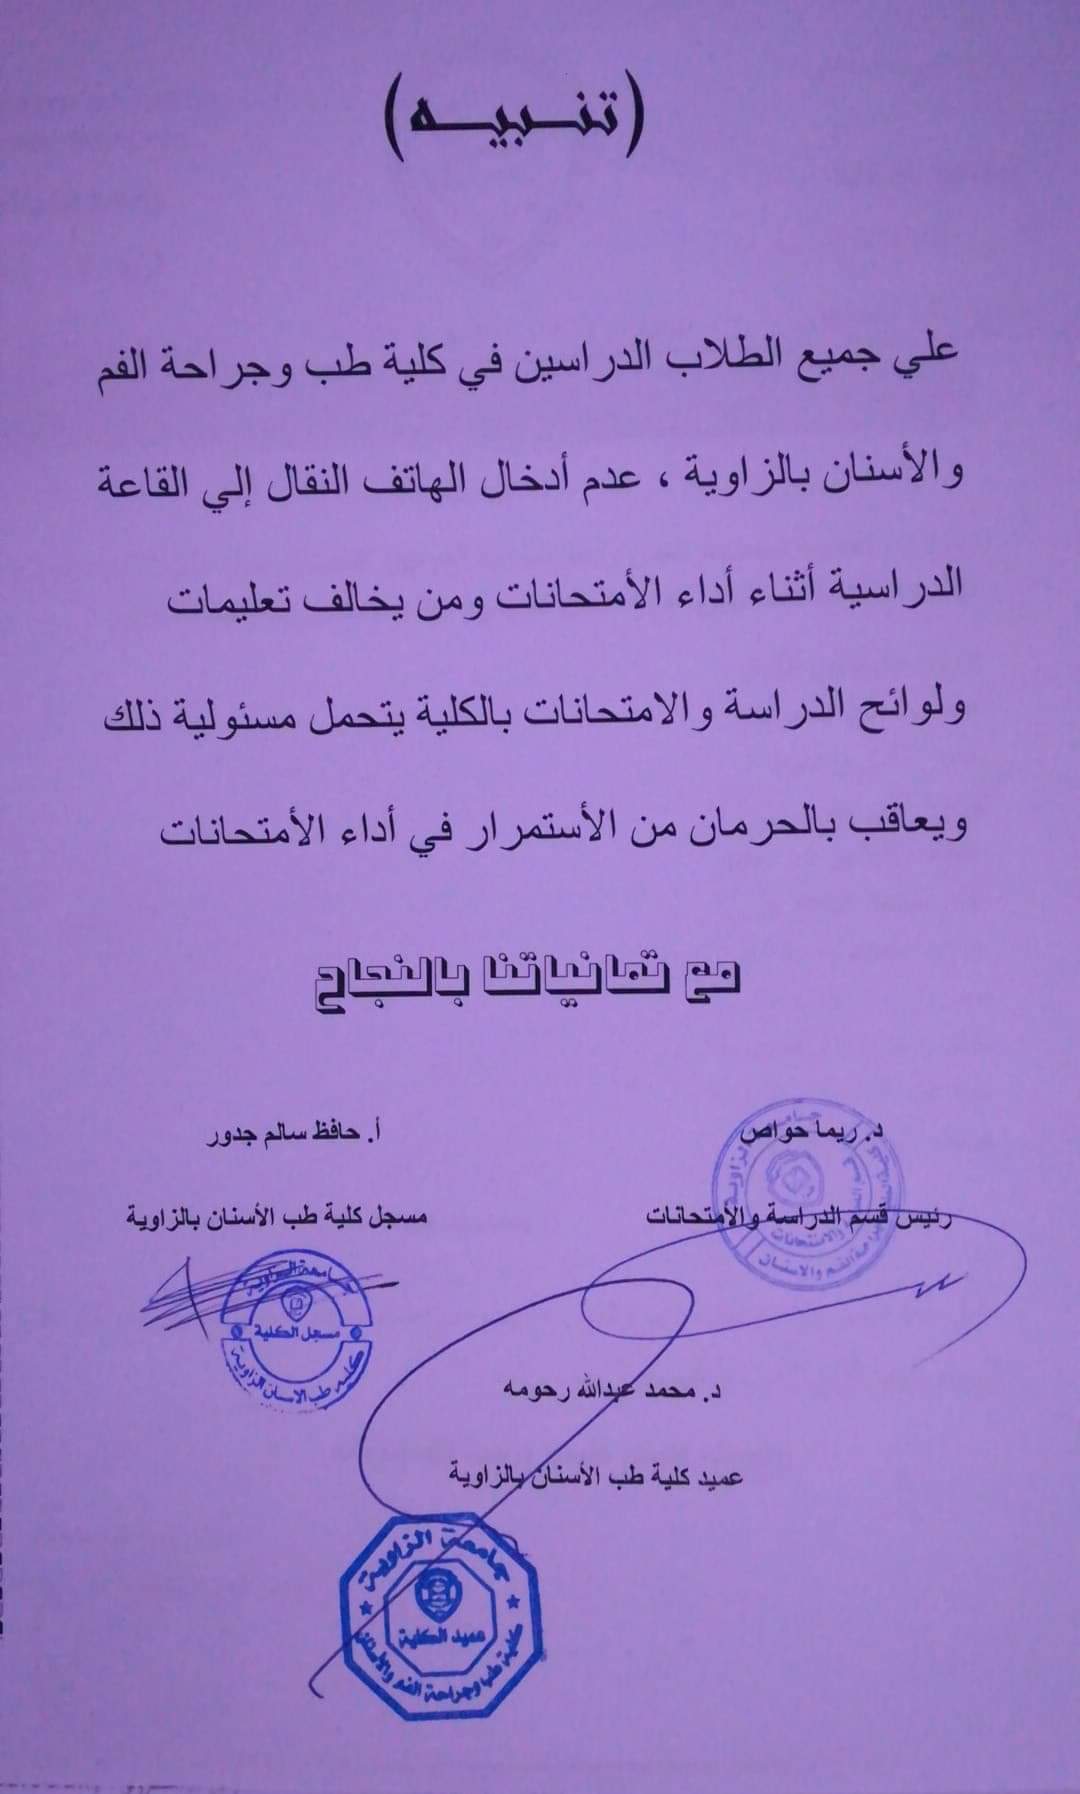 (تنبيه)
علي جميع الطلاب الدراسين في كلية طب وجراحة الفم
والأسنان بالزاوية ، عدم أدخال الهاتف النقال إلي القاعة
الدراسية أثناء أداء الأمتحانات ومن يخالف تعليمات
ولوائح الدراسة والامتحانات بالكلية يتحمل مسئولية ذلك
ويعاقب بالحرمان من الأستمرار في أداء الأمتحانات
مع تمانياتنا بالنجاح
د. ريما حواص
رئيس قسم الدراسة والامتحانات
أ. حافظ سالم جدور
مسجل كلية طب الأسنان بالزاوية
جامعة الزاوية
مسجل الكلية
كلية طب الاسنان الزاوية
د. محمد عبدالله رحومه
عميد كلية طب الأسنان بالزاوية
جامعة الزاوية
عميد الكلية
كلية طب وجراحة الفم والأسنان